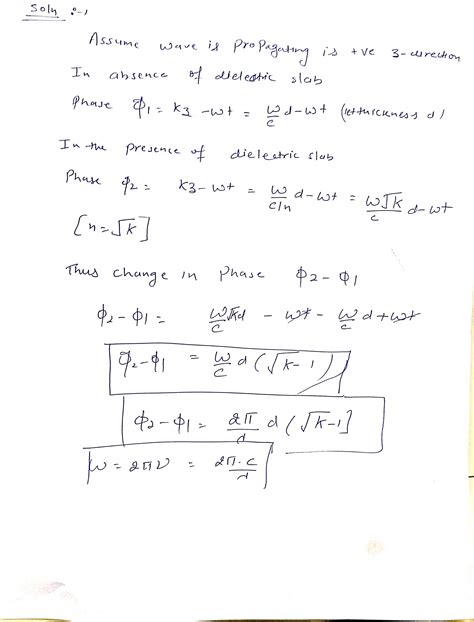 Soln :-
Assume wave is propagating is +ve 3-direction
In absence of dielectric slab
Phase Φ₁ = k3 - ωt = ω/c d - ωt (let thickness d)
In the presence of dielectric slab
Phase ϕ₂ = k3 - ωt = ω/(c/n) d - ωt = ω√K/c d - ωt
[n = √K]
Thus change in phase ϕ₂ - ϕ₁
ϕ₂ - ϕ₁ = ω/c √K d - ωt - ω/c d + ωt
Φ₂ - ϕ₁ = ω/c d (√K - 1)
ϕ₂ - ϕ₁ = 2π/λ d (√K - 1]
ω = 2πν = 2π.c/λ